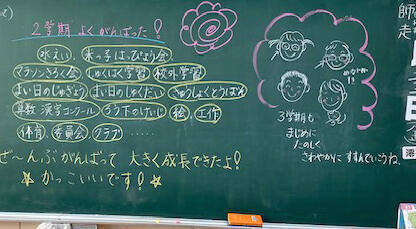 2学期 よくがんばった!
水えい 木っ子はっぴょう会
マラソンきろく会 しゅくはく学習 校外学習
まい日のじゅぎょう まい日のしゅくだい きゅうしょくとうばん
算数・漢字コンクール ろう下のしたい 絵 工作
体育 委員会 クラブ ・・・・・
ぜ〜んぶがんばって 大きく成長できたよ!
☆かっこいいです!☆
3学期も
まじめに
たのしく
さわやかに すすんでいこうね。
師
走